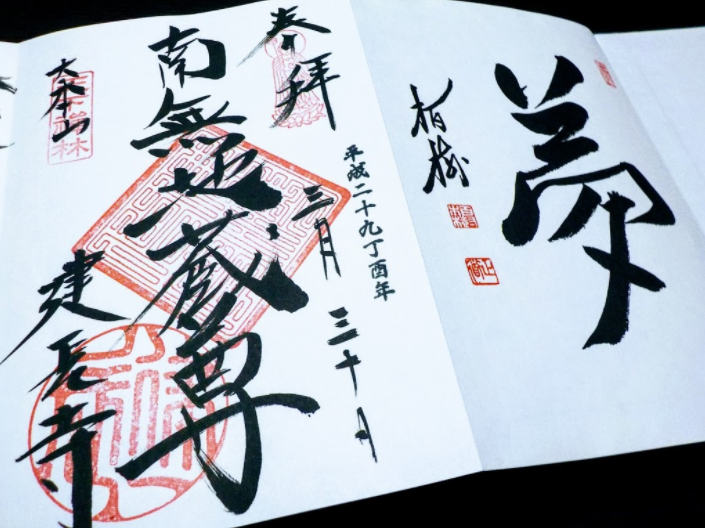 夢
柏樹
奉拝
平成二十九丁酉年
三月三十日
南無地蔵尊
大本山
建長寺